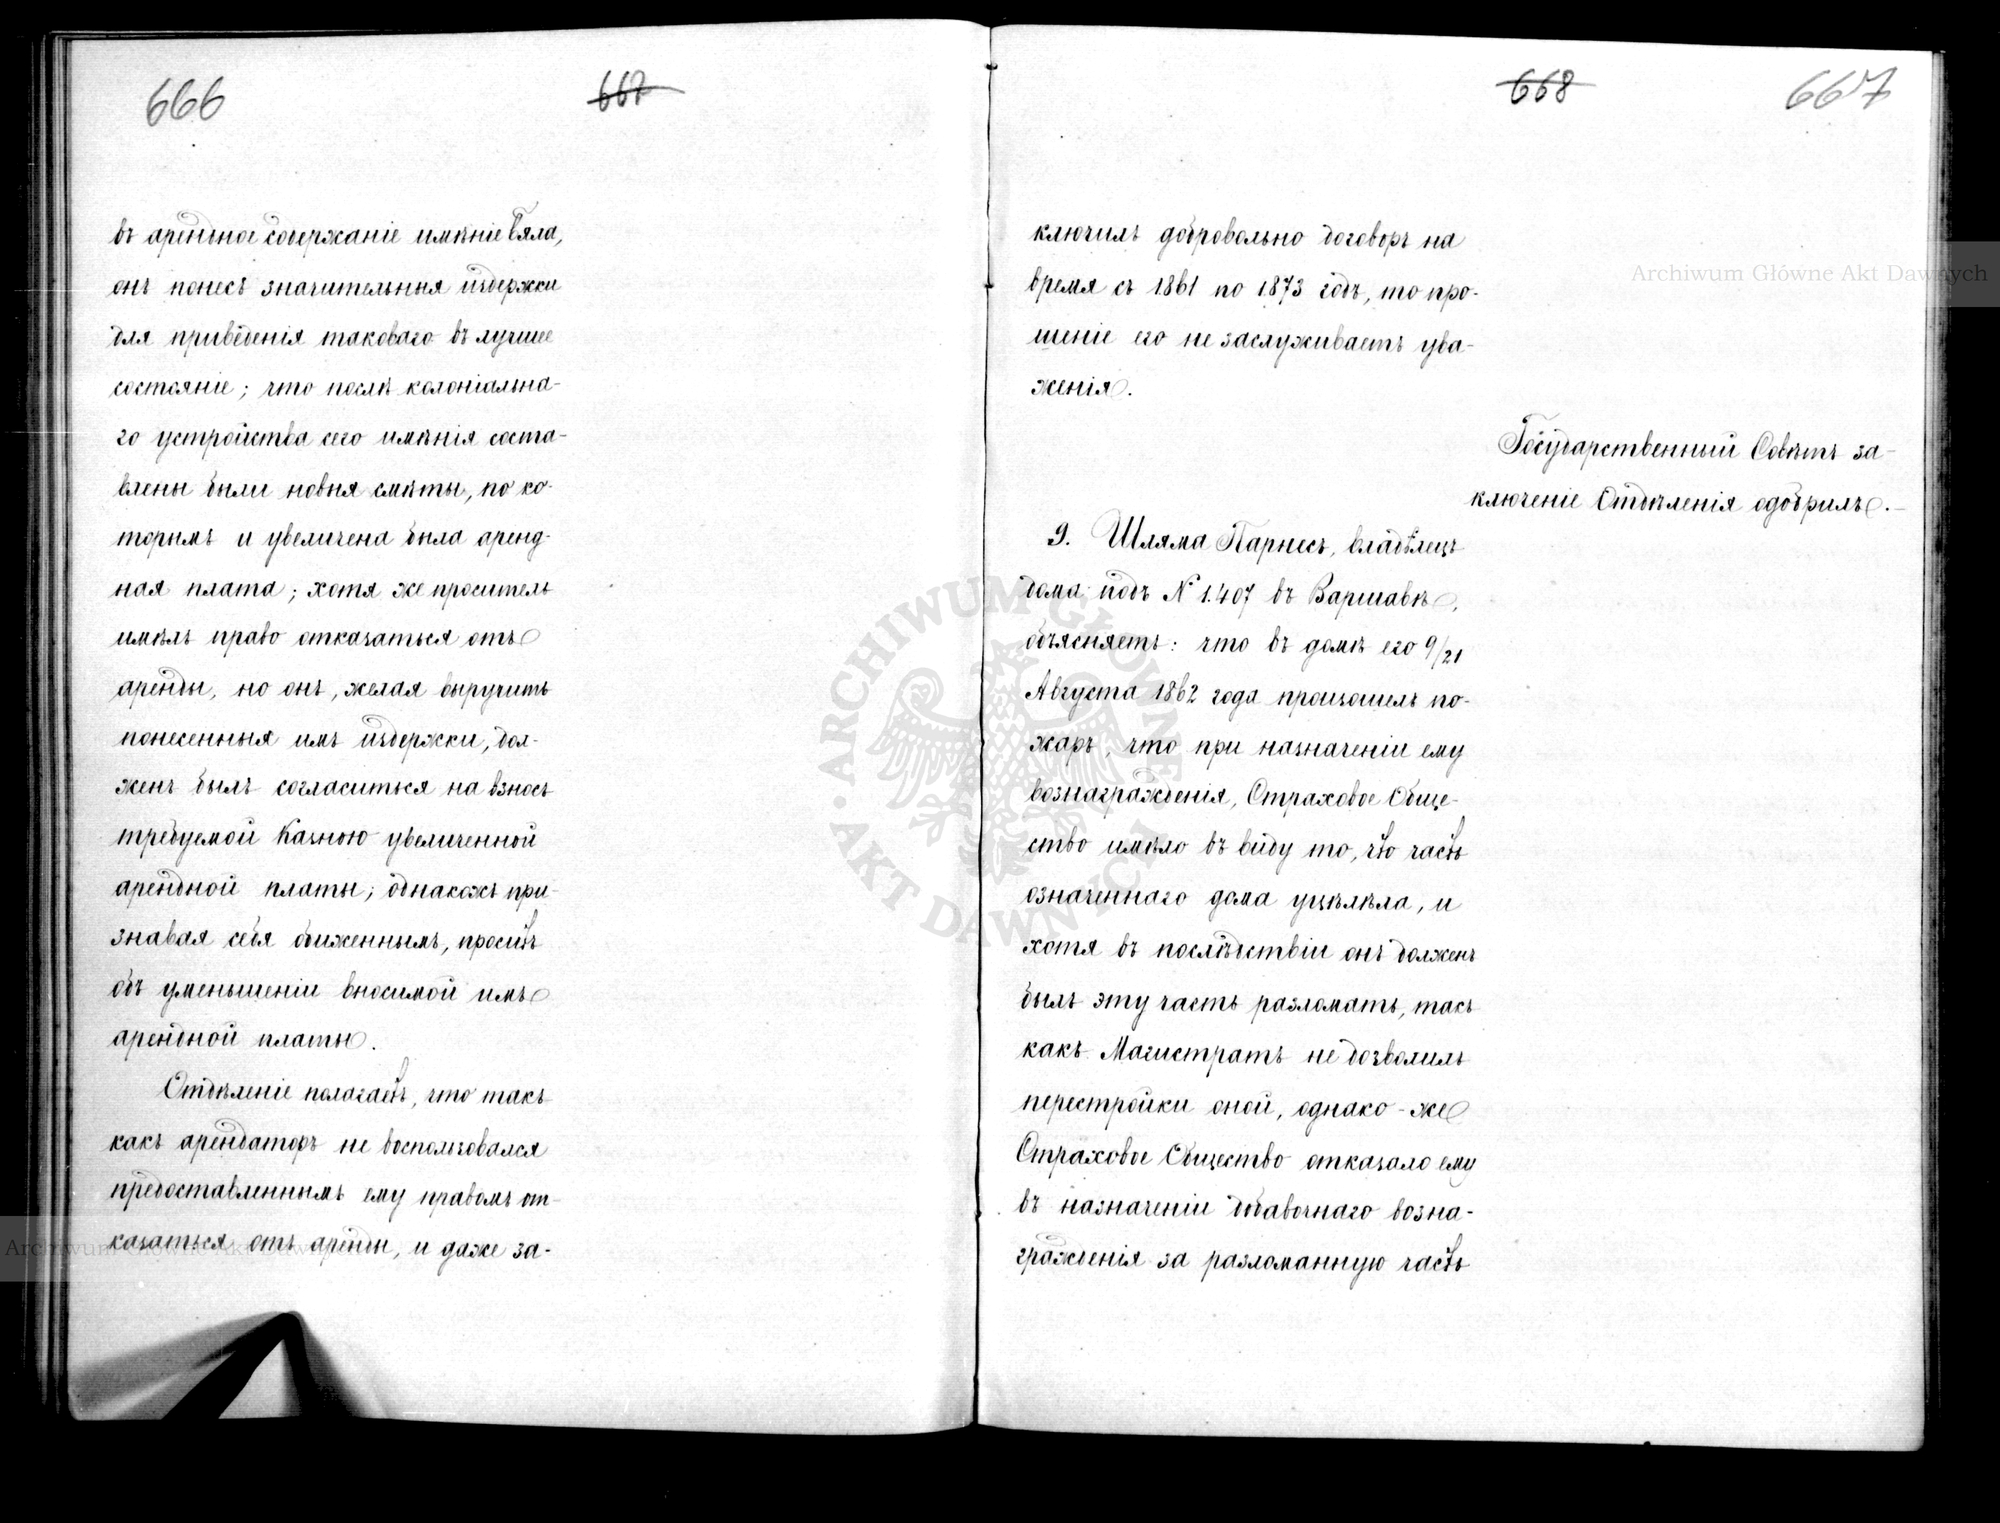 666
667
въ арендное содержаніе имѣніе Бяла,
онъ понесъ значительныя издержки
для приведенія таковаго въ лучшее
состояніе; что послѣ колоніальна-
го устройства сего имѣнія соста-
влены были новыя смѣты, по ко-
торымъ и увеличена была аренд-
ная плата; хотя же проситель
имѣлъ право отказаться отъ
аренды, но онъ, желая выручить
понесенныя имъ издержки, дол-
женъ былъ согласиться на взносъ
требуемой Казною увеличенной
арендной платы; однакожъ при-
знавая себя обиженнымъ, проситъ
объ уменьшеніи вносимой имъ
арендной платы.
Отдѣленіе полагаетъ, что такъ
какъ арендаторъ не воспользовался
предоставленнымъ ему правомъ от-
казаться отъ аренды, и даже за-
668
667
ключилъ добровольно договоръ на
время съ 1861 по 1873 годъ, то про-
шеніе его не заслуживаетъ ува-
женія.
Государственный Совѣтъ за-
ключеніе Отдѣленія одобрилъ.
9. Шляма Парнесъ, владѣлецъ
дома подъ № 1407 въ Варшавѣ,
объясняетъ: что въ домѣ его 9/21
Августа 1862 года произошелъ по-
жаръ, что при назначеніи ему
вознагражденія, Страховое Обще-
ство имѣло въ виду то, что часть
означеннаго дома уцѣлѣла, и
хотя въ послѣдствіи онъ долженъ
былъ эту часть разломать, такъ
какъ Магистратъ не дозволилъ
перестройки оной, однако-же
Страховое Общество отказало ему
въ назначеніи добавочнаго возна-
гражденія за разломанную часть
Archiwum Główne Akt Dawnych
ARCHIWUM GŁÓWNE
AKT DAWNYCH
Archiwum Główne Akt Dawnych